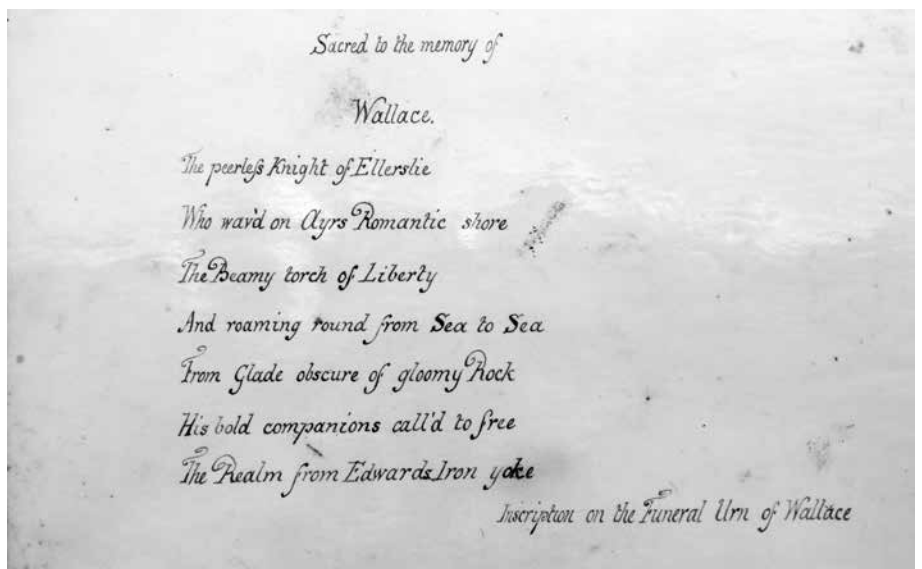 Sacred to the memory of
Wallace.
The peerleſs Knight of Ellerslie
Who wav'd on Ayrs Romantic shore
The Beamy torch of Liberty
And roaming round from Sea to Sea
From Glade obscure of gloomy Rock
His bold companions call'd to free
The Realm from Edwards Iron yoke
Inscription on the Funeral Urn of Wallace